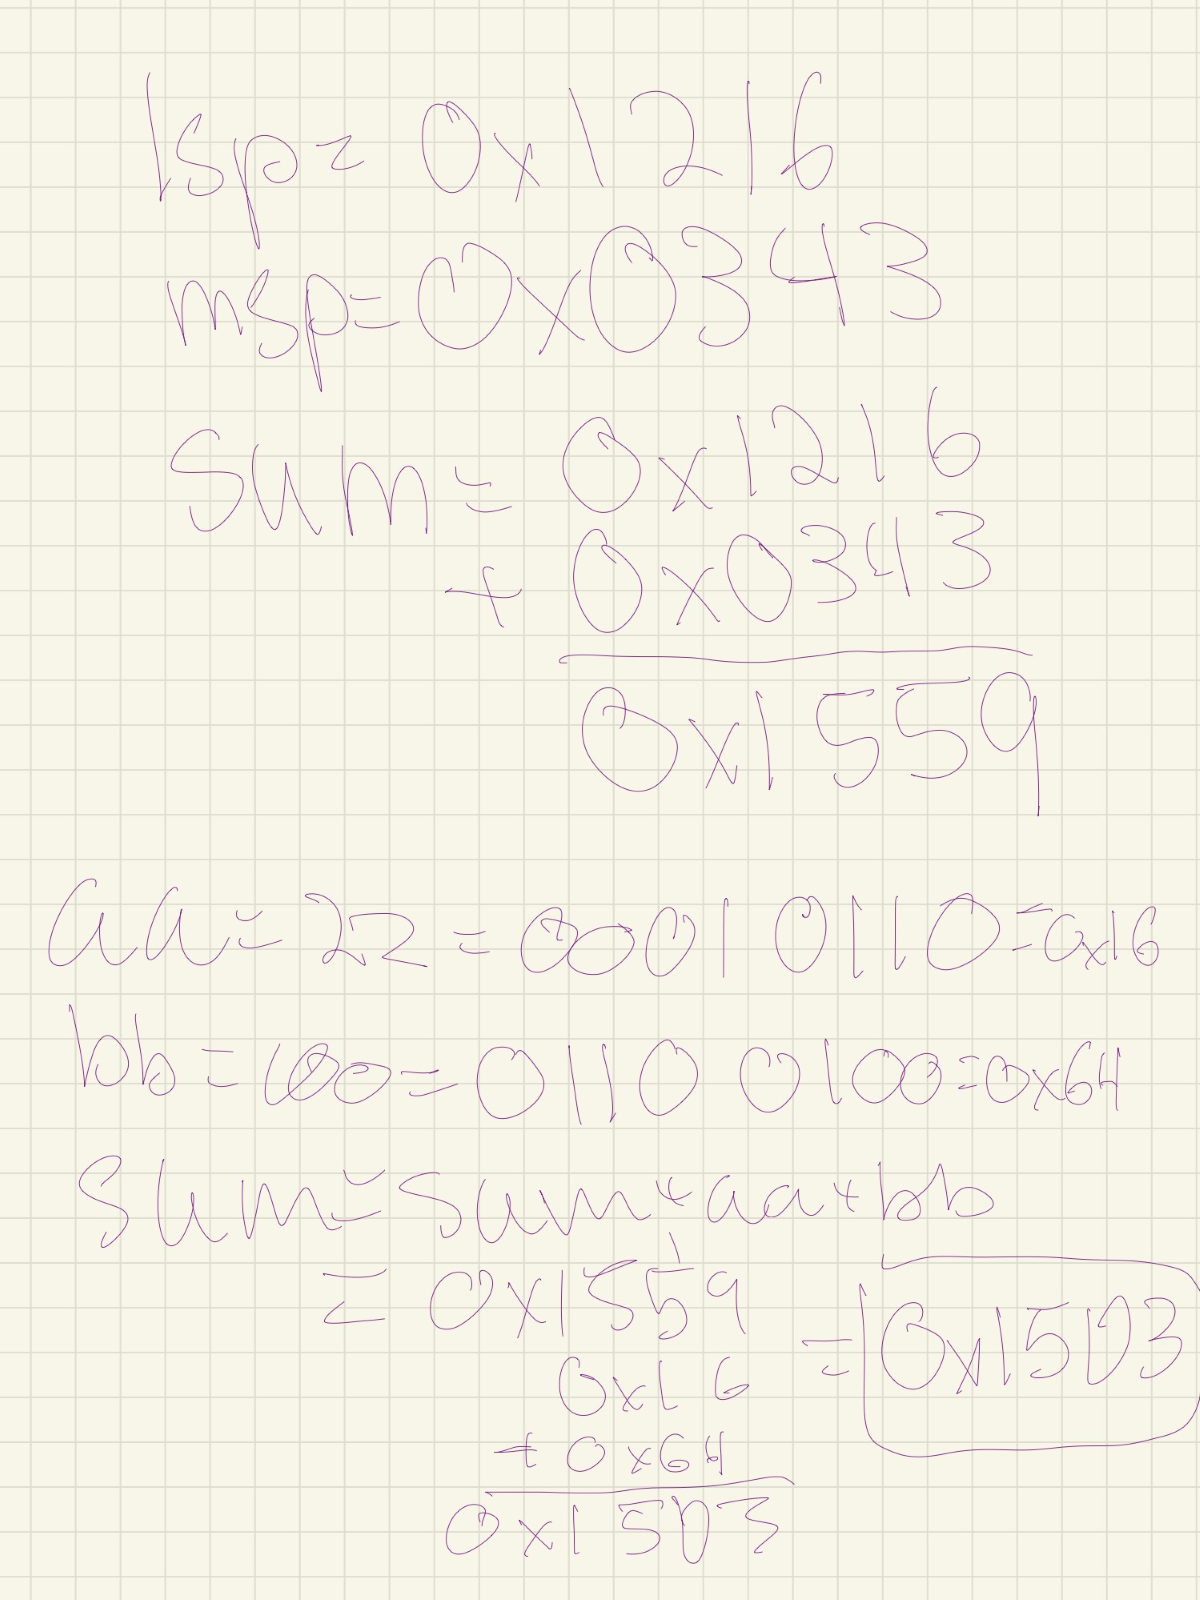 lsp = 0x1216
msp = 0x0343
sum = 0x1216
+ 0x0343
0x1559
aa = 22 = 0001 0110 = 0x16
bb = 100 = 0110 0100 = 0x64
sum = sum + aa + bb
1
= 0x1559
0x16
+ 0x64
0x15D3
= 0x15D3